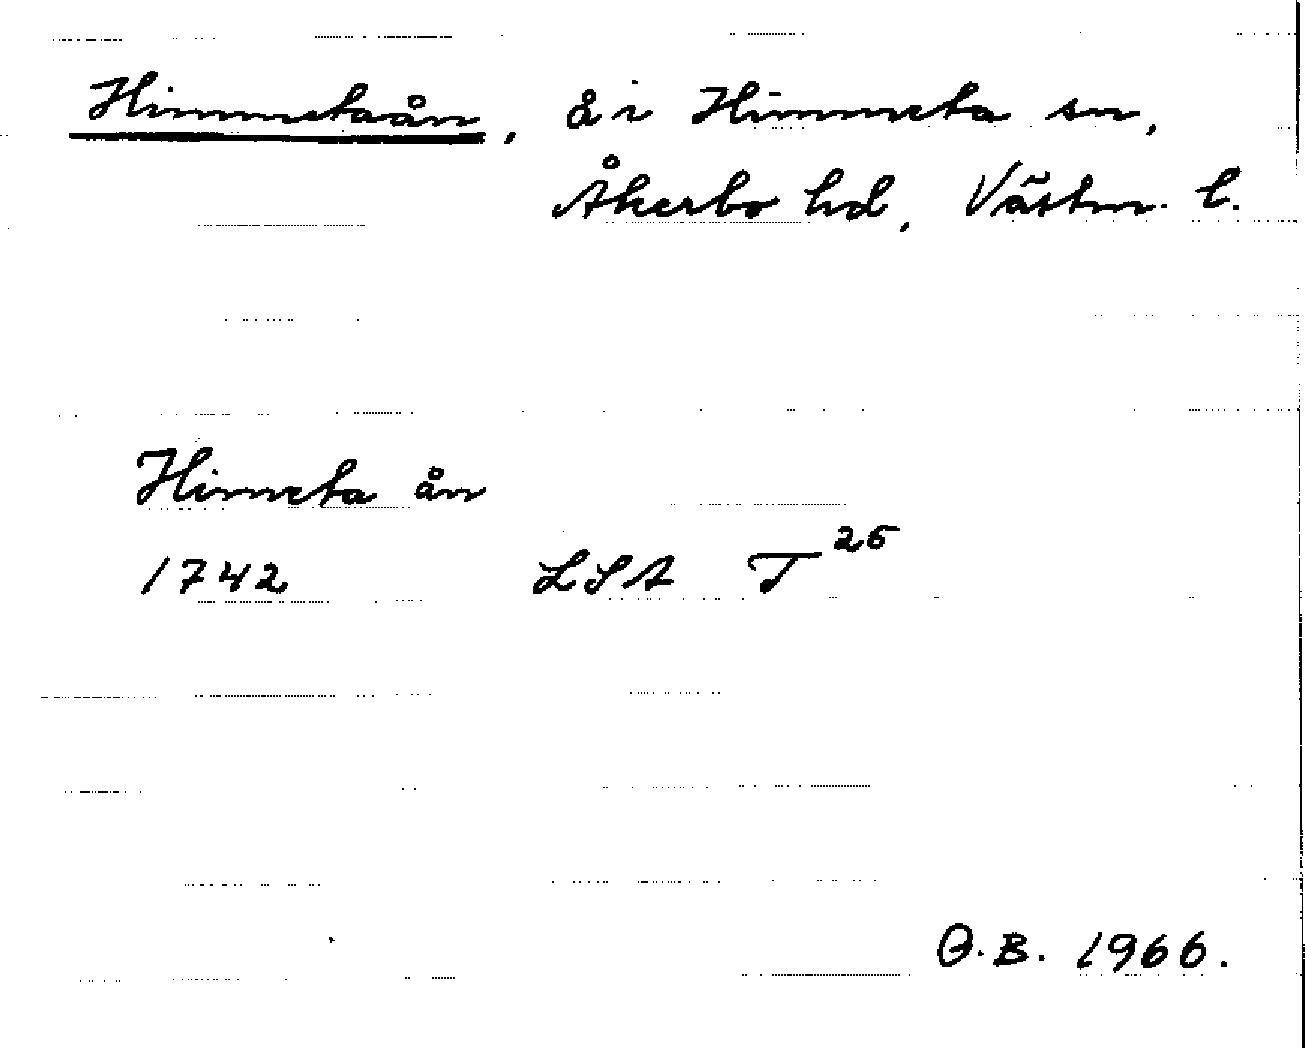 Himmetaån, å i Himmeta sn,
Åkerbo hd, Västm. l.
Himeta ån
1742 LSA T 26
O.B. 1966.